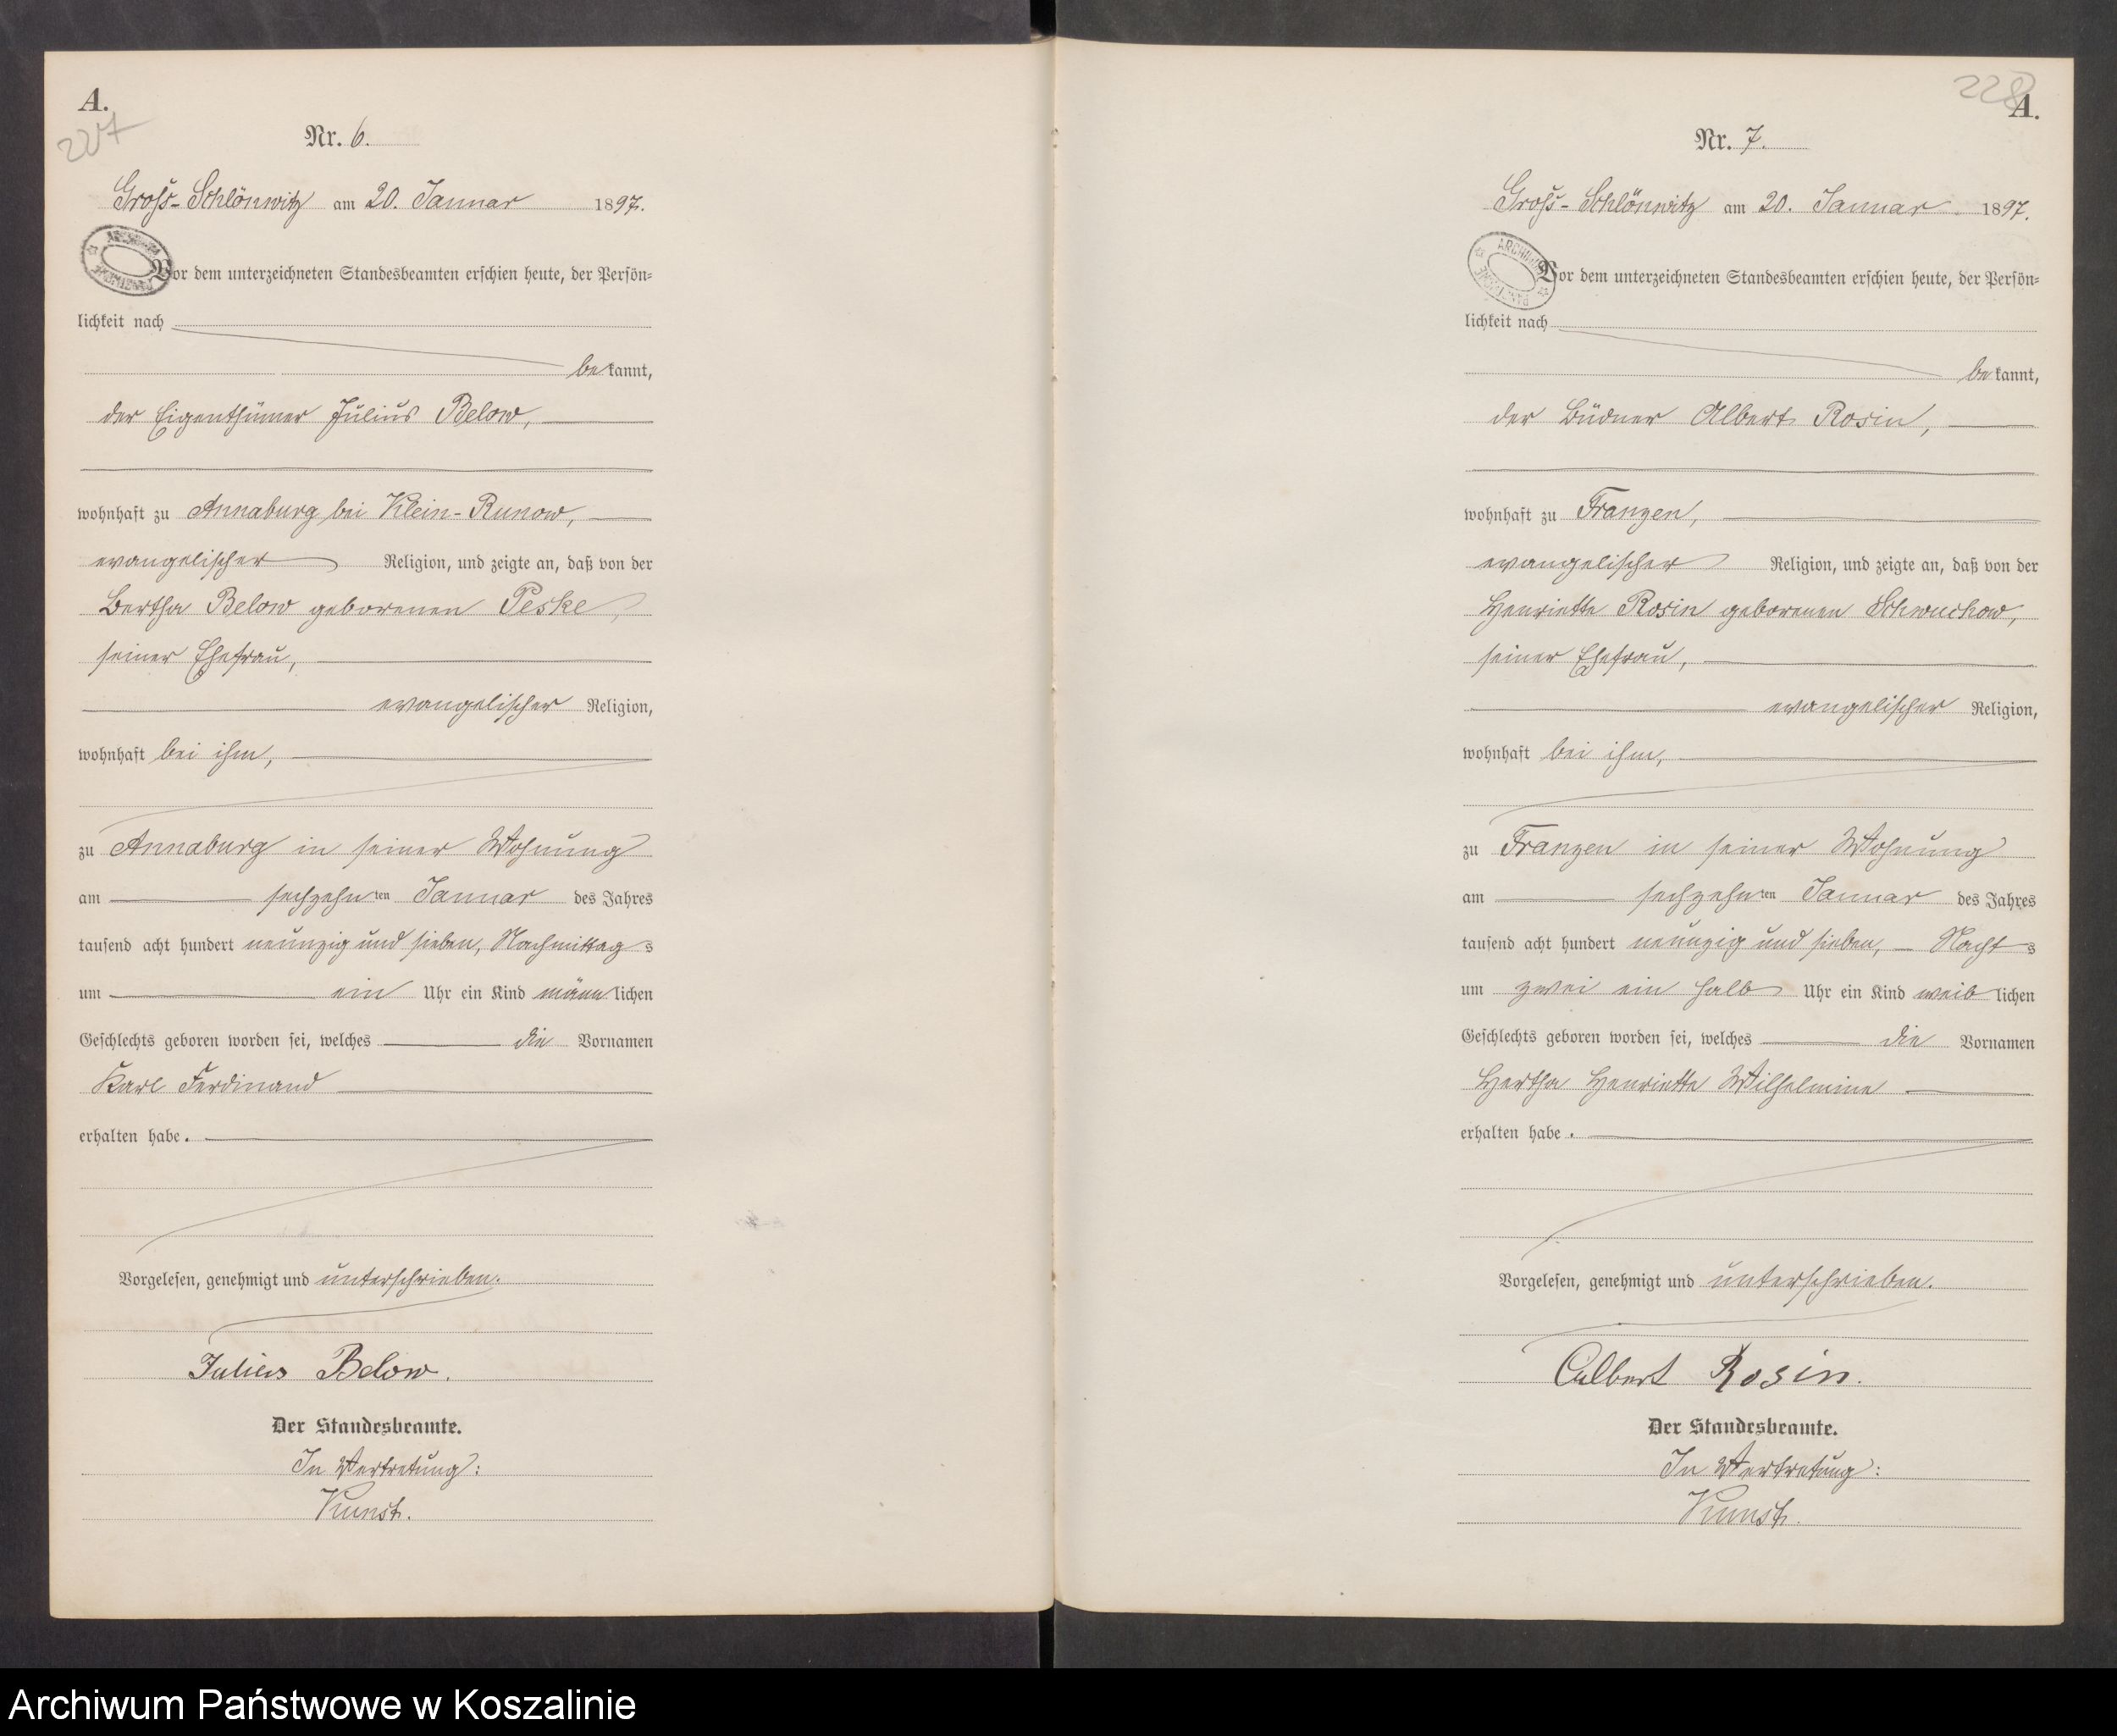 A.
227
Nr. 6.
Gross-Schlönwitz am 20. Januar 1897.
Vor dem unterzeichneten Standesbeamten erschien heute, der Persön-
lichkeit nach
bekannt,
der Eigenthümer Julius Below,
wohnhaft zu Annaburg bei Klein-Runow,
evangelischer Religion, und zeigte an, daß von der
Bertha Below geborenen Peske,
seiner Ehefrau,
evangelischer Religion,
wohnhaft bei ihm,
zu Annaburg in seiner Wohnung
am sechzehnten Januar des Jahres
tausend acht hundert neunzig und sieben, Nachmittags
um ein Uhr ein Kind männlichen
Geschlechts geboren worden sei, welches die Vornamen
Karl Ferdinand
erhalten habe.
Vorgelesen, genehmigt und unterschrieben.
Julius Below.
Der Standesbeamte.
In Vertretung:
Kunst.
228
A.
Nr. 7.
Gross-Schlönwitz am 20. Januar 1897.
Vor dem unterzeichneten Standesbeamten erschien heute, der Persön-
lichkeit nach
bekannt,
der Büdner Albert Rosin,
wohnhaft zu Franzen,
evangelischer Religion, und zeigte an, daß von der
Henriette Rosin geborenen Schwuchow,
seiner Ehefrau,
evangelischer Religion,
wohnhaft bei ihm,
zu Franzen in seiner Wohnung
am sechzehnten Januar des Jahres
tausend acht hundert neunzig und sieben, Nachts
um zwei ein halb Uhr ein Kind weiblichen
Geschlechts geboren worden sei, welches die Vornamen
Hertha Henriette Wilhelmine
erhalten habe.
Vorgelesen, genehmigt und unterschrieben.
Albert Rosin.
Der Standesbeamte.
In Vertretung:
Kunst.
Archiwum Państwowe w Koszalinie